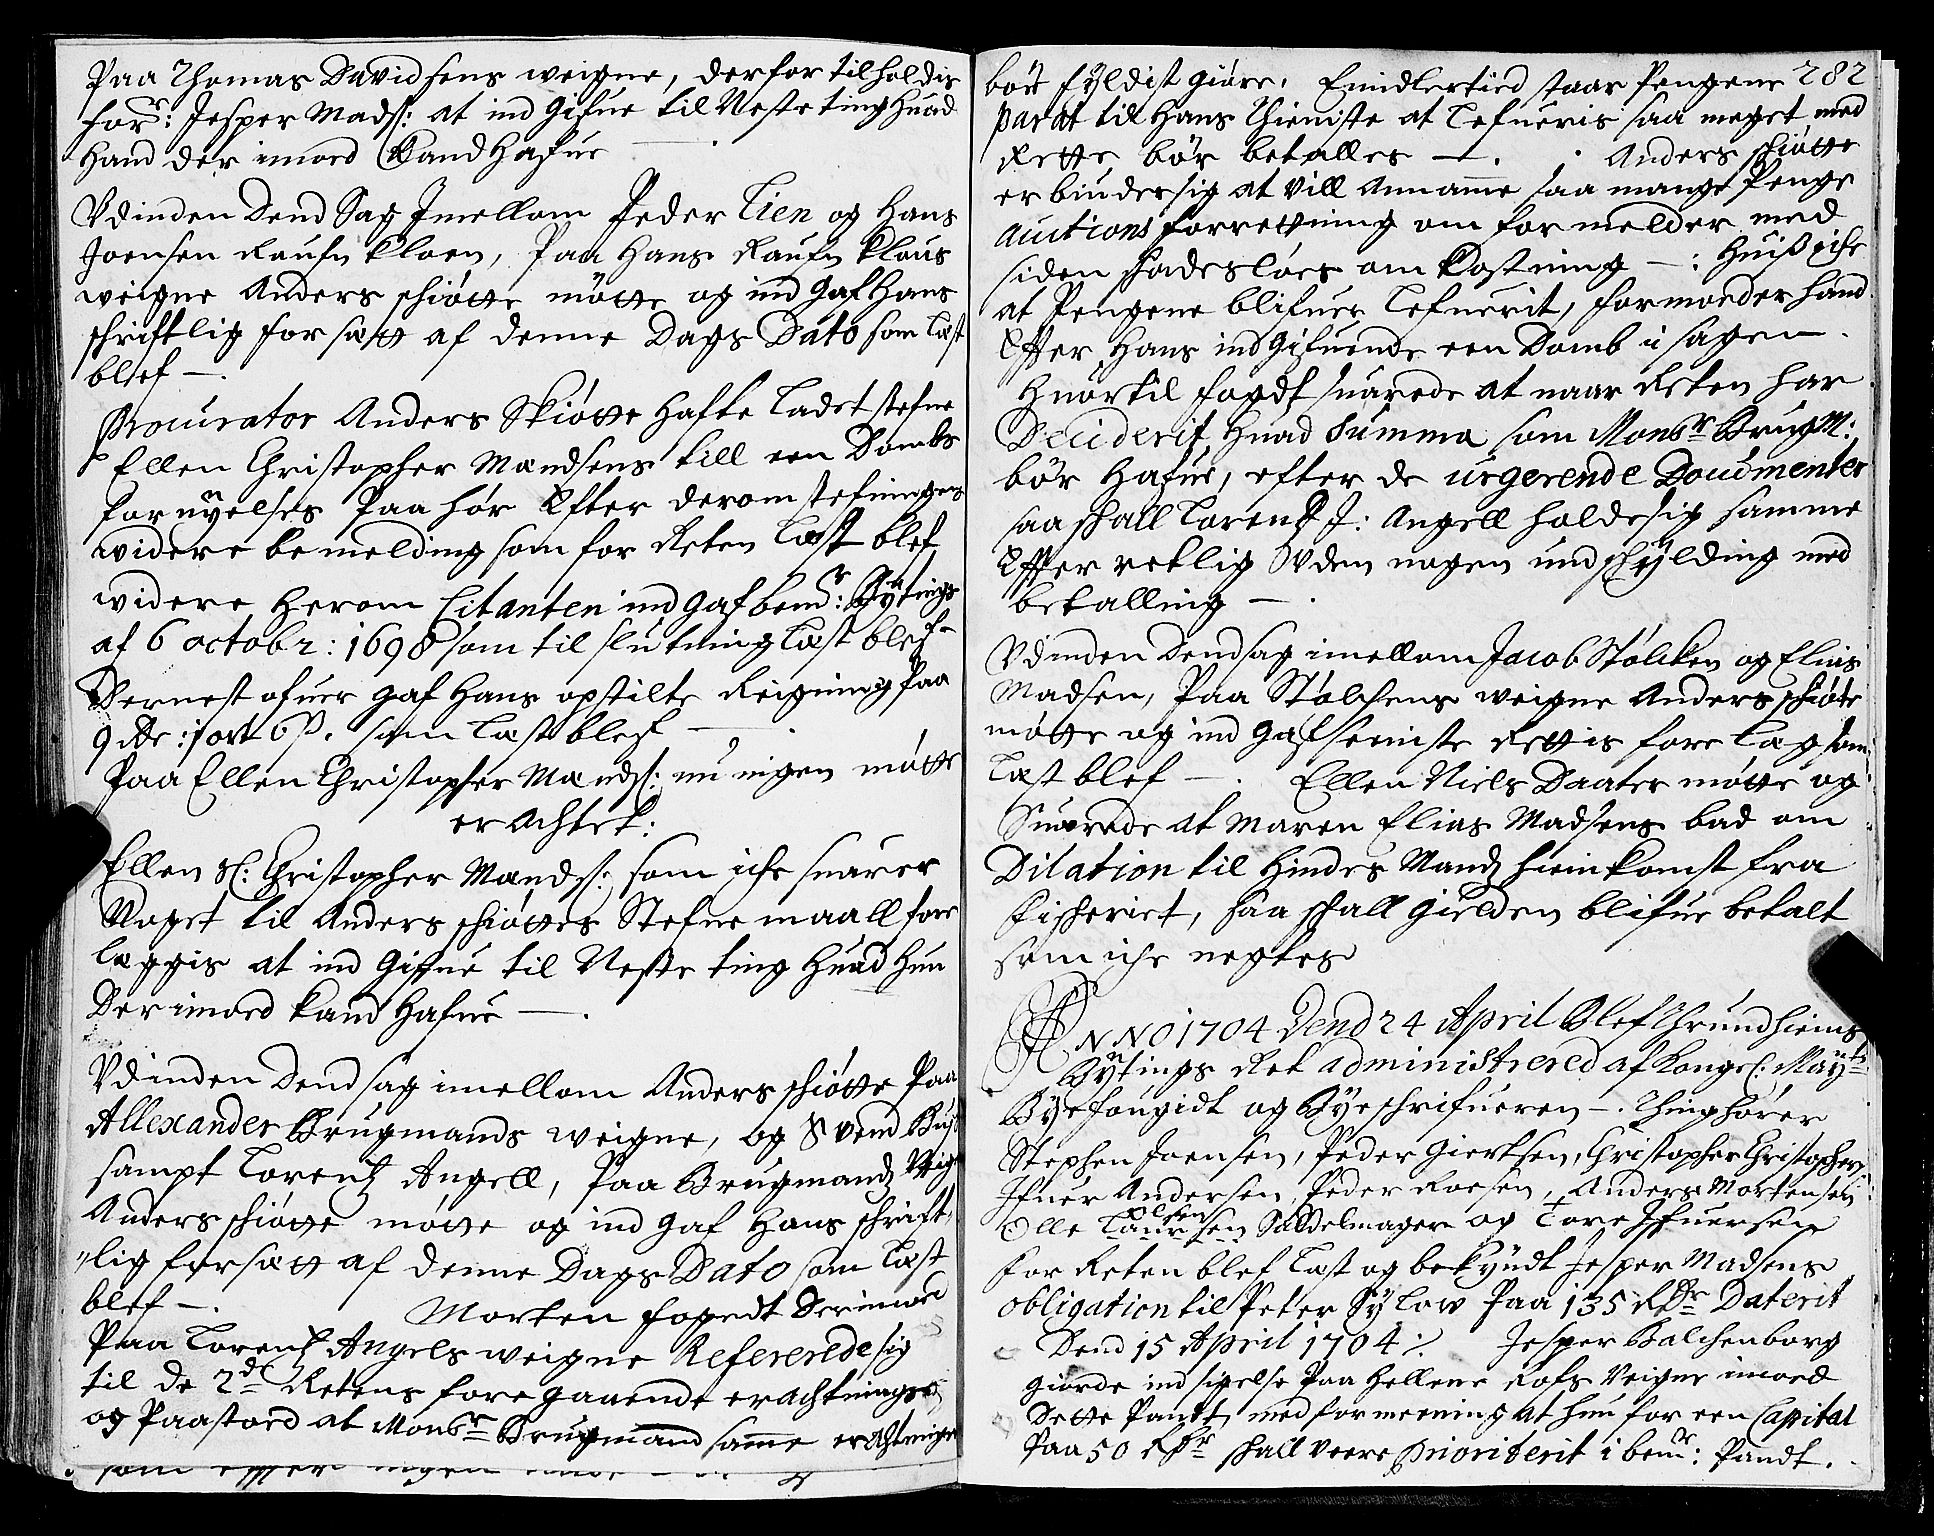 Paa Thomas Davidsens weigne, derfor tilholdis
forr: Jesper Madss: at ind Gifue til Neste ting huad
hand der imoed kand hafue —.
Vdinden Dend Sag Jmellom Peder Lien og Hans
Joensen Raufn kloen, Paa Hans Raufn klous
weigne Anders schiøtte møtte og ind Gaf Hans
schriftlig forsætt af denne Dags Dato som læst
blef —.
Procurator Anders Skiøtte hafte Ladet stefne
Ellen Christopher Mandsens till een Dombs
fornyelses Paahør Efter derom stefningens
widere bemelding som for Reten Læst blef
widere herom Citanten ind Gaf bemr: Bytings
af 6 octobr: 1698 som til slutning Læst blef –
Dernest ofuer gaf Hans opstilte Reigning Paa
9 rdr: 1 ort 6 s. som Læst blef —.
Paa Ellen Christopher Mandss: nu ingen møtte
er Achtet:
Ellen Sl: Christopher Mandss: som iche suarer
Noget til Anders schiøttes Stefnemaall fore
læggis at ind Gifue til Neste ting huad hun
Der imoed kand hafue —.
Vdinden Dend sag imellom Anders schiøtte Paa
Allexander Brugmands weigne, og Svend Busk
sampt Lorentz Angell, Paa Brugmands Weigne
Anders schiøtte møtte og ind Gaf Hans schrift,
„lig forsætt af denne Dags Dato som Læst
blef —. Morten fogedt Derimoed
Paa Lorentz Angels weigne Refererede sig
til de 2de Retens foregaaende erachtninger
og Paastoed at Monsr Brugmand samme erachtninger
282
bør fyldist giøre. Emidlertied staar Pengene
parat til Hans Thieniste at Lefueris saa meget med
Rette bør betalles —. Anders schiøtte
erbinder sig at vill Annamme saa mange Penge
auctions forretning om formelder med
siden schadesløes omkostning —: Huis iche
at Pengene blifuer Lefuerit, formoeder hand
Efter Hans indGifuende een Domb i sagen —.
Huortil fogdt suarede at naar Reten har
Deciderit huad Summa som Monsr Brugm:
bør hafue, efter de urgerende Documenter
saa schall Lorentz J: Angell holde sig samme
Efterretlig Vden nogen undschylding med
betalling —.
Vdinden Dend sag imellom Jacob Stølcken og Elias
Madsen, Paa Stølchens weigne Anders schiøte
møtte og ind Gaf seeniste Rettis forelæg som
Læst blef —. Ellen Niels Daater møtte og
Suarede at Maren Elias Madsens bad om
Dilation til hindes Mands hiemkomst fra
fischeriet, saa schall gielden blifue betalt
som iche negtes
ANNO 1704 Dend 24 April Blef Thrundhiems
Bytings Ret administrered af Kongel: Mayts
Byefougidt og Byeschrifueren —. Thinghører
Stephen Joensen, Peder Giertsen, Christopher Christophers:
Ifuer Andersen, Peder Roesen, Anders Mortensen
Olsen
Olle Laursen Saddelmager og Tore Ifuersen
for Reten blef Læst og bekyndt Jesper Madsens
obligation til Peter Sylow Paa 135 Rdr Daterit
Dend 15 April 1704 :/. Jesper Balchenborg
giorde indsigelse Paa Hellene Rofs Weigne imoed
Dette Pantt, med formeening at hun for een Capital
Paa 50 Rdr schall veere Prioriterit i bemr: Pandt.